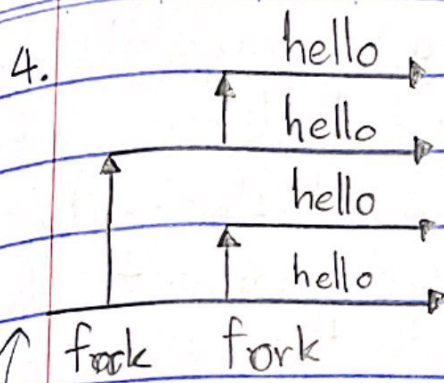 4.
hello
hello
hello
hello
fork fork